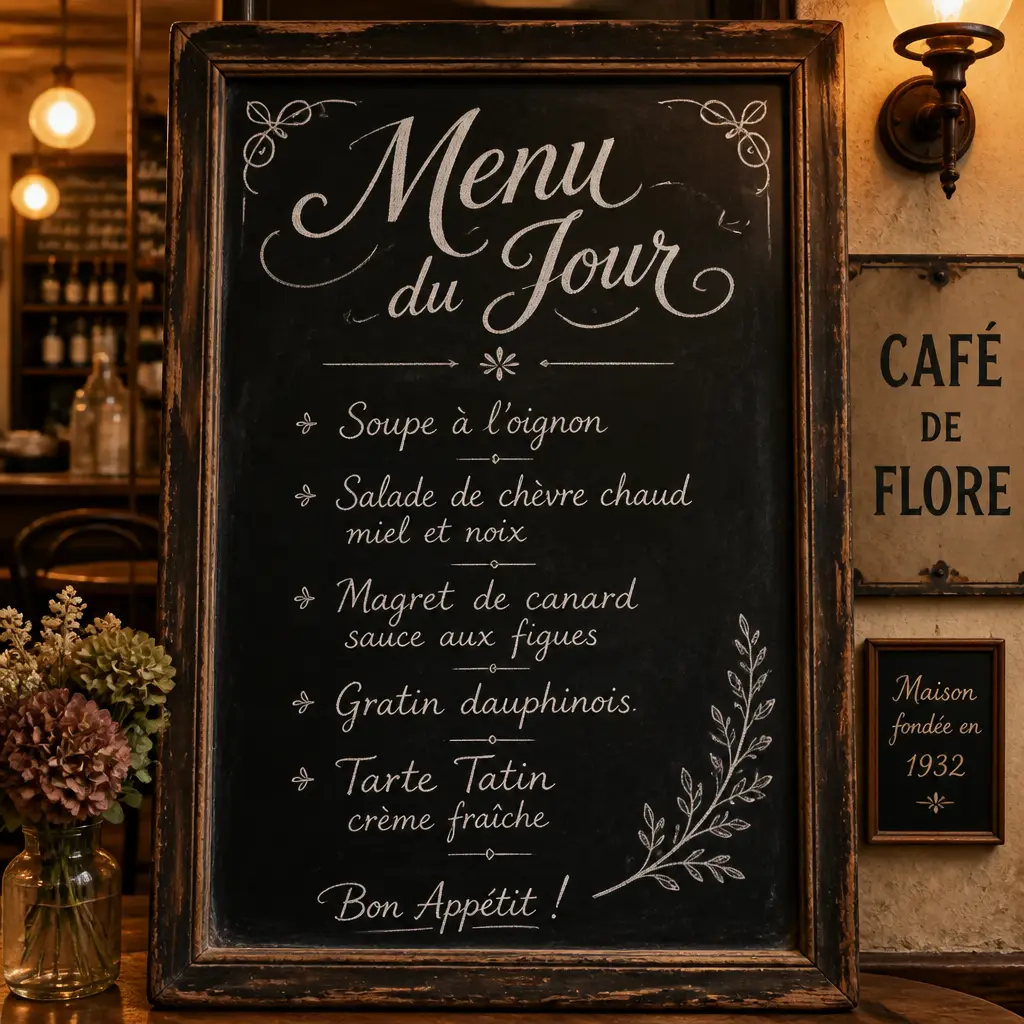 Menu
du Jour
Soupe à l'oignon
Salade de chèvre chaud
miel et noix
Magret de canard
sauce aux figues
Gratin dauphinois.
Tarte Tatin
crème fraîche
Bon Appétit !
CAFÉ
DE
FLORE
Maison
fondée en
1932